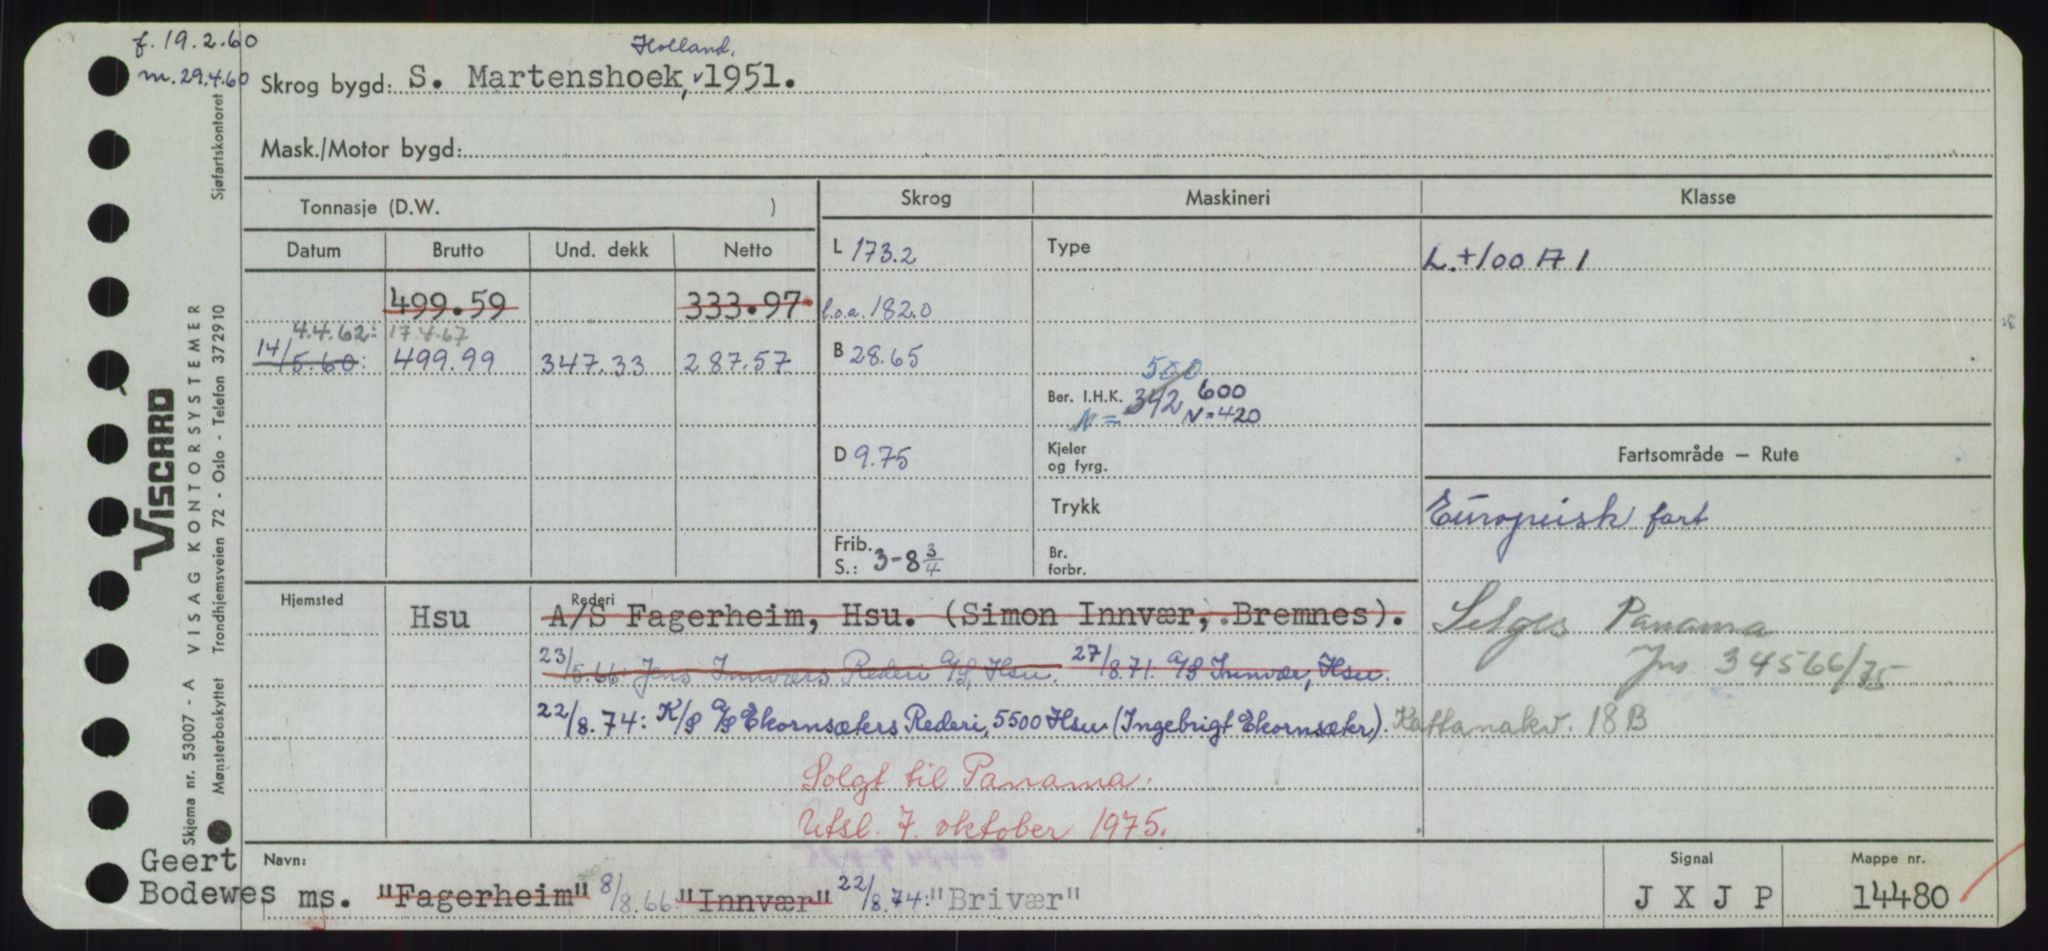 f. 19.2.60
m. 29.4.60
Holland.
Skrog bygd: S. Martenshoek, 1951.
Mask./Motor bygd:
Tonnasje (D.W. )
Skrog
Maskineri
Klasse
Datum Brutto Und. dekk Netto
L 173.2
Type
L. +100 A 1
499.59 333.97
l.o.a. 182.0
4.4.62: 17.4.67
14/5.60: 499.99 347.33 287.57
B 28.65
500
Ber. I.H.K. 342 600
N = N=420
D 9.75
Kjeler
og fyrg.
Fartsområde — Rute
Trykk
Europeisk fart
Frib.
S.: 3-8 3/4
Br.
forbr.
Hjemsted
Rederi
Hsu A/S Fagerheim, Hsu. (Simon Innvær, Bremnes).
Selges Panama
23/5.66: Jens Innværs Rederi A/S, Hsu. 27/8.71. A/S Innvær, Hsu.
Jns. 34566/75
22/8.74: K/S A/S Ekornsæters Rederi, 5500 Hsu (Ingebrigt Ekornsæter). Kattanakv. 18 B
Solgt til Panama.
Utsl. 7. oktober 1975.
Geert
Bodewes
Navn:
ms. "Fagerheim" 8/8.66: "Innvær" 22/8.74: "Brivær"
Signal
J X J P
Mappe nr.
14480
VISCARD
Skjema nr. 53007 - A VISAG KONTORSYSTEMER
Mønsterboskyttet Trondhjemsveien 72 - Oslo - Telefon 372910 Sjøfartskontoret